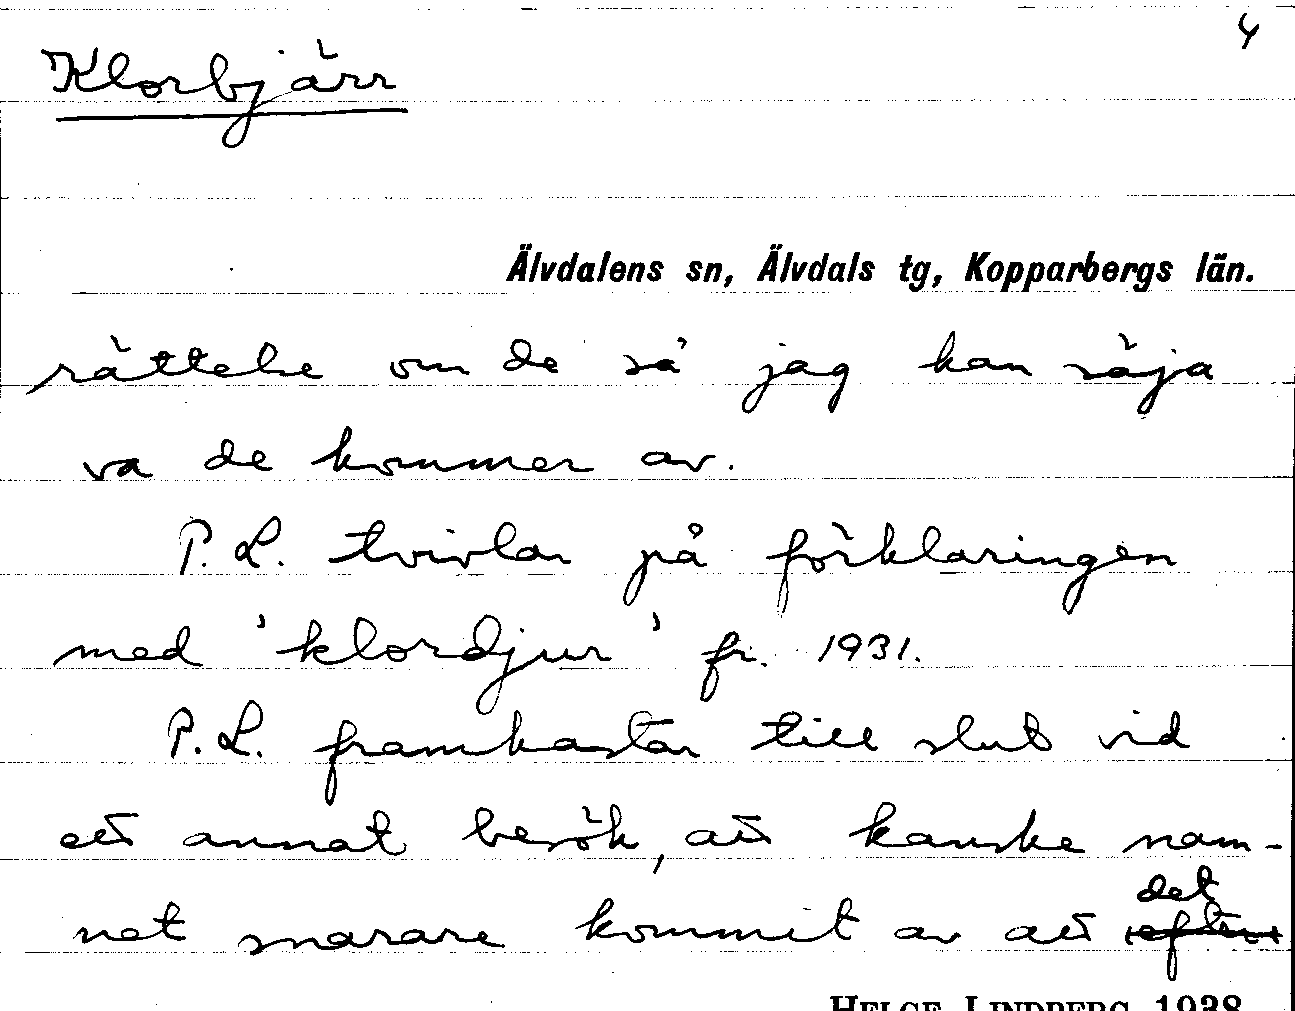 4
Klorbjärr
Älvdalens sn, Älvdals tg, Kopparbergs län.
rättelse om de så jag kan säja
va de kommer av.
P.L. tvivlar på förklaringen
med 'klordjur' fr. 1931.
P.L. framkastar till slut vid
ett annat besök, att kanske nam-
det
net snarare kommit av att
HELGE LINDBERG 1938